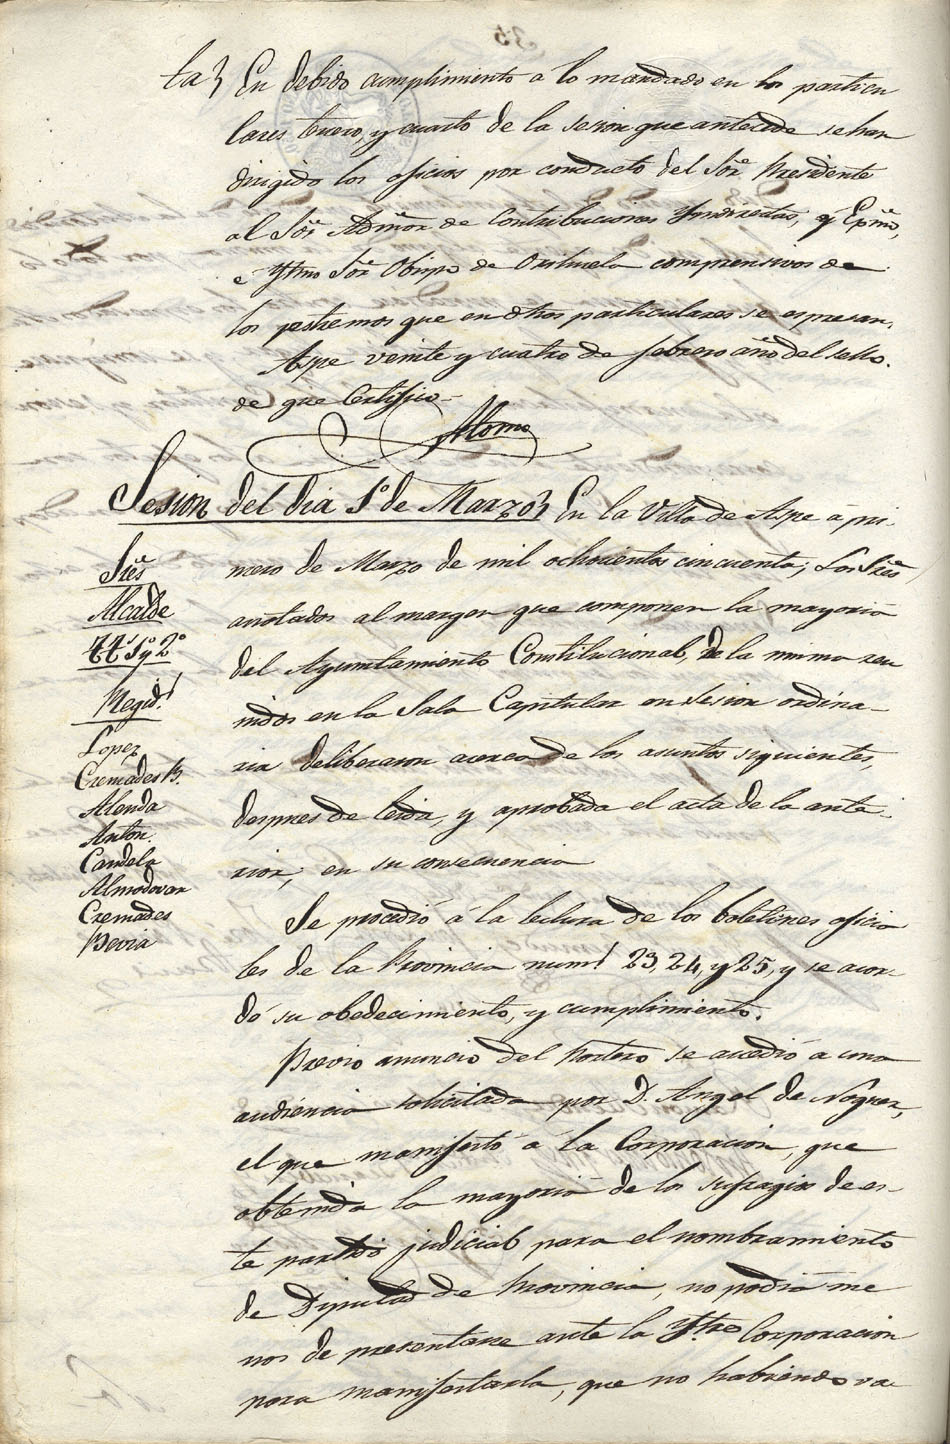 ta} En debido cumplimiento a lo mandado en los particu
lares tercero, y cuarto de la sesion que antecede se han
dirigido los oficios por conducto del Sor. Presidente
al Sor. Admor. de Contribuciones Yndirectas, y Exmo,
e Ytmo Sor. Obispo de Orihuela comprensivos de
los estremos que en dhos particulares se espresan.
Aspe veinte y cuatro de febrero año del sello.
de que Certifico-
Alonso
Sesion del dia 1º de Marzo} En la Villa de Aspe á pri-
mero de Marzo de mil ochocientos cincuenta; Los Sres
anotados al margen que componen la mayoria
del Ayuntamiento Constitucional, de la misma reu
nidos en la Sala Capitular en sesion ordina-
ria deliberaron acerca de los asuntos siguientes,
despues de leida, y aprobada el acta de la ante-
rior, en su consecuencia
Sres
Alcalde
TT. 1º y 2º
Regid.s
Lopez
Cremades B.
Alenda
Anton.
Candela
Almodovar
Cremades
Bevia
Se procedió á la lectura de los boletines oficia
les de la Provincia nums. 23, 24, y 25, y se acor-
dó su obedecimiento, y cumplimiento.
Previo anuncio del Portero se accedió a una
audiencia solicitada por D. Angel de Noguer,
el que manifestó á la Corporacion, que
obtenida la mayoria de los sufragios de es-
te partido judicial para el nombramiento
de Diputado de Provincia, no podia me
nos de presentarse ante la Ytre Corporacion
para manifestarla, que no habiendo va-